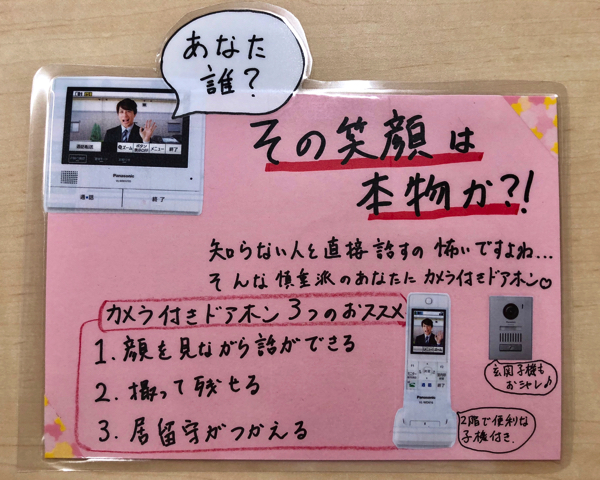 あなた
誰?
その笑顔は
本物か?!
Panasonic
通話
終了
知らない人と直接話すの怖いですよね…
そんな慎重派のあなたにカメラ付きドアホン♡
カメラ付きドアホン3つのおススメ
1. 顔を見ながら話ができる
2. 撮って残せる
3. 居留守がつかえる
玄関子機も
おシャレ♪
2階で便利な
子機付き.